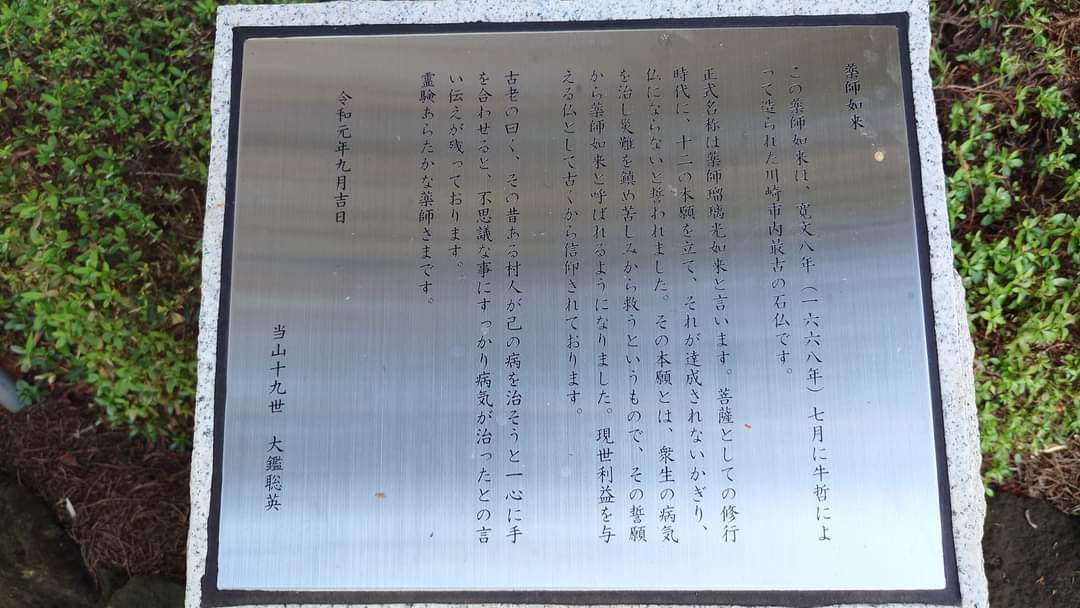 薬師如来
この薬師如来は、寛文八年（一六六八年）七月に牛哲によ
って造られた川崎市内最古の石仏です。
正式名称は薬師瑠璃光如来と言います。菩薩としての修行
時代に、十二の本願を立て、それが達成されないかぎり、
仏にならないと誓われました。その本願とは、衆生の病気
を治し災難を鎮め苦しみから救うというもので、その誓願
から薬師如来と呼ばれるようになりました。現世利益を与
える仏として古くから信仰されております。
古老の曰く、その昔ある村人が己の病を治そうと一心に手
を合わせると、不思議な事にすっかり病気が治ったとの言
い伝えが残っております。
霊験あらたかな薬師さまです。
令和元年九月吉日
当山十九世　大鑑聡英